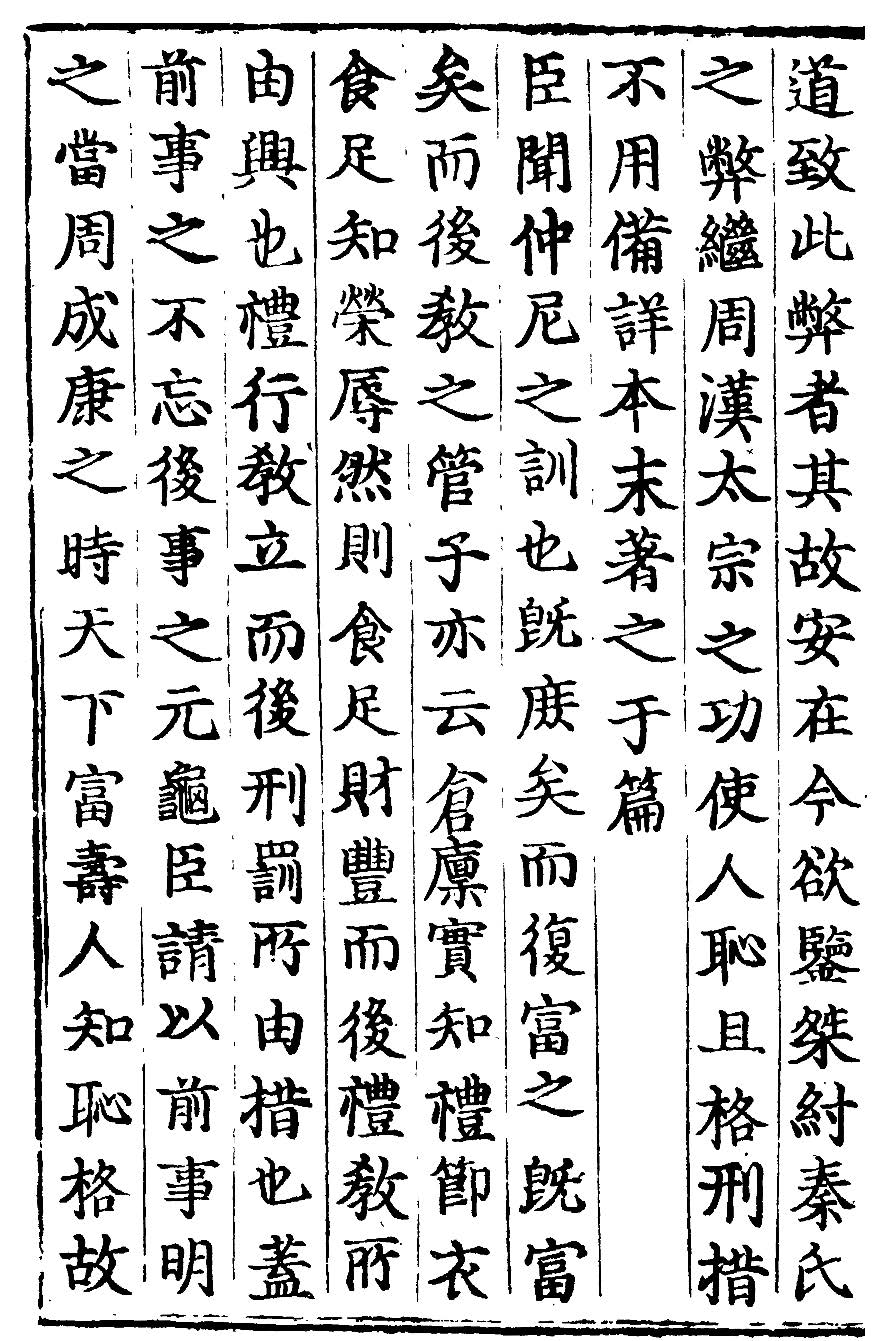 道致此弊者其故安在今欲鑒桀紂秦氏
之弊繼周漢太宗之功使人恥且格刑措
不用備詳本末著之于篇
臣聞仲尼之訓也旣庻矣而復富之旣富
矣而後教之管子亦云倉廪實知禮節衣
食足知榮辱然則食足財豐而後禮教所
由興也禮行教立而後刑罰所由措也蓋
前事之不忘後事之元龜臣請以前事明
之當周成康之時天下富壽人知恥格故